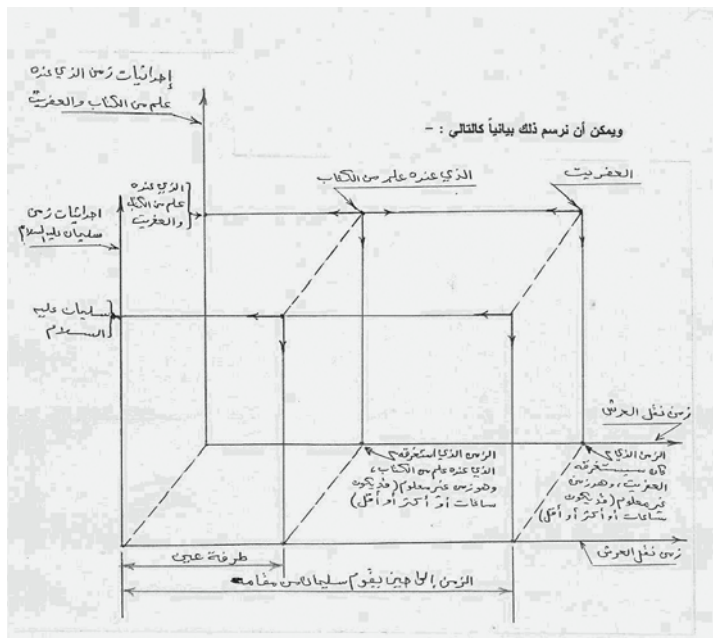 إحداثيات زمن الذي عنده
علم من الكتاب والعفريت
ويمكن أن نرسم ذلك بيانياً كالتالي : -
العفريت
الذي عنده علم من الكتاب
الذي عنده
علم من الكتاب
والعفريت
احداثيات زمن
سليمان عليه السلام
سليمان عليه
السلام
زمن نقل العرش
الزمن الذي استغرقه
الذي عنده علم من الكتاب،
وهو زمن غير معلوم (قد يكون
ساعات أو أكثر أو أقل)
الزمن الذي
كان سيستغرقه
العفريت، وهو زمن
غير معلوم (قد يكون
ساعات أو أكثر أو أقل)
زمن نقل العرش
طرفة عين
الزمن إلى حين يقوم سليمان من مقامه